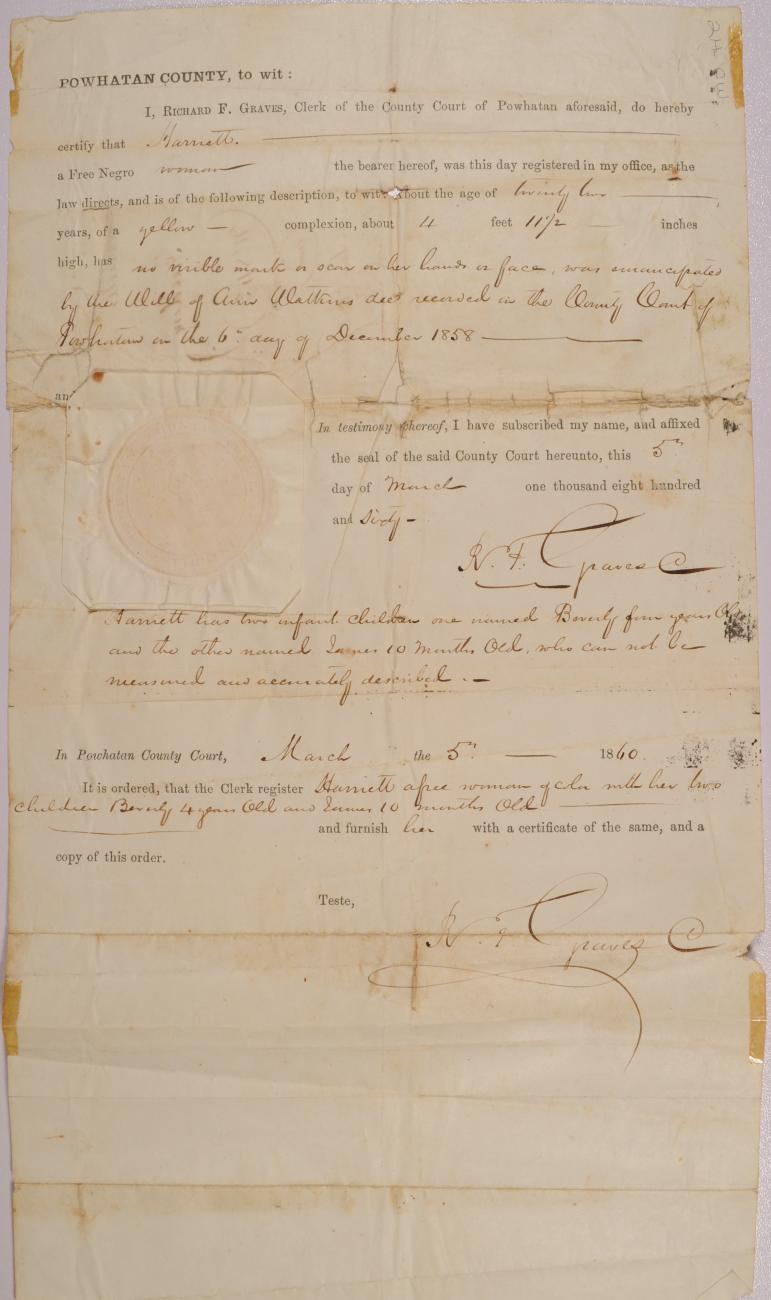 POWHATAN COUNTY, to wit :
I, RICHARD F. GRAVES, Clerk of the County Court of Powhatan aforesaid, do hereby
certify that Harriett.
a Free Negro woman the bearer hereof, was this day registered in my office, as the
law directs, and is of the following description, to wit: About the age of twenty two
years, of a yellow — complexion, about 4 feet 11 1/2 — inches
high, has no visible mark or scar on her hands or face, was emancipated
by the Will of Ann Watkins decd recorded in the County Court of
Powhatan on the 6th day of December 1858 —
an
In testimony whereof, I have subscribed my name, and affixed
the seal of the said County Court hereunto, this 5th
day of March one thousand eight hundred
and Sixty –
R. F. Graves C
Harriett has two infant children one named Beverly four years Old
and the other named James 10 Months Old, who can not be
measured and accurately described. —
In Powhatan County Court, March the 5th — 1860.
It is ordered, that the Clerk register Harriett a free woman of color with her two
children Beverly 4 years Old and James 10 months Old —
and furnish her with a certificate of the same, and a
copy of this order.
Teste,
R. F. Graves C